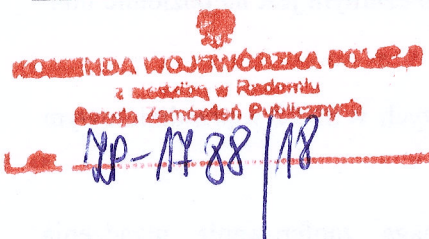 KOMENDA WOJEWÓDZKA POLICJI
z siedzibą w Radomiu
Sekcja Zamówień Publicznych
L.dz. ZP-1788/18